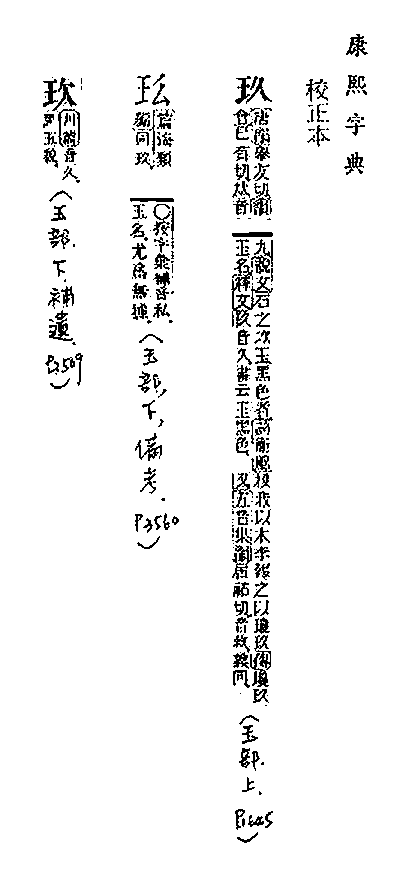 康熙字典
校正本
玖
唐韻舉友切韻
會巳有切𠀤音
九說文石之次玉黑色者詩衛風投我以木李報之以瓊玖傳瓊玖
玉名釋文玖音久書云玉黑色 又五音集韻居祐切音救義同
(玉部.上.P1645)
篇海類
編同玖
○按字彙補音私
玉名尤為無據
(玉部,下,備考.P3560)
川篇音久
玉貌
(玉部.下.補遺.P3509)